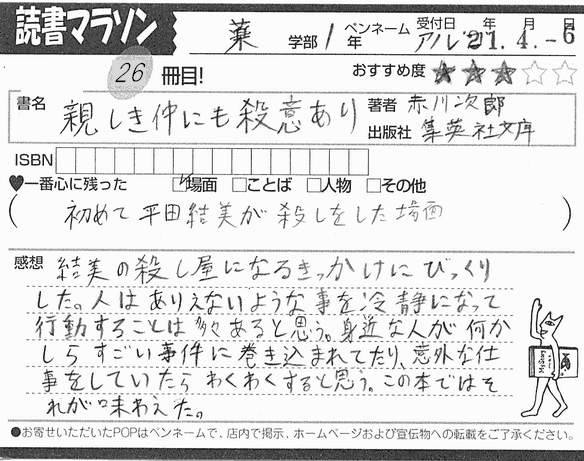 読書マラソン
薬 学部 1 年 ペンネーム アル 受付日 年 月 日 '21.4.-6
26 冊目! おすすめ度 ★★★☆☆
書名 親しき仲にも殺意あり 著者 赤川次郎
出版社 集英社文庫
ISBN
♥一番心に残った ☑場面 □ことば □人物 □その他
(初めて平田結美が殺しをした場面)
感想 結美の殺し屋になるきっかけにびっくり
した。人はありえないような事を冷静になって
行動することは多々あると思う。身近な人が何か
しらすごい事件に巻き込まれてたり、意外な仕
事をしていたらわくわくすると思う。この本ではそ
れが味わえた。
●お寄せいただいたPOPはペンネームで、店内で掲示、ホームページおよび宣伝物への転載をご了承ください。